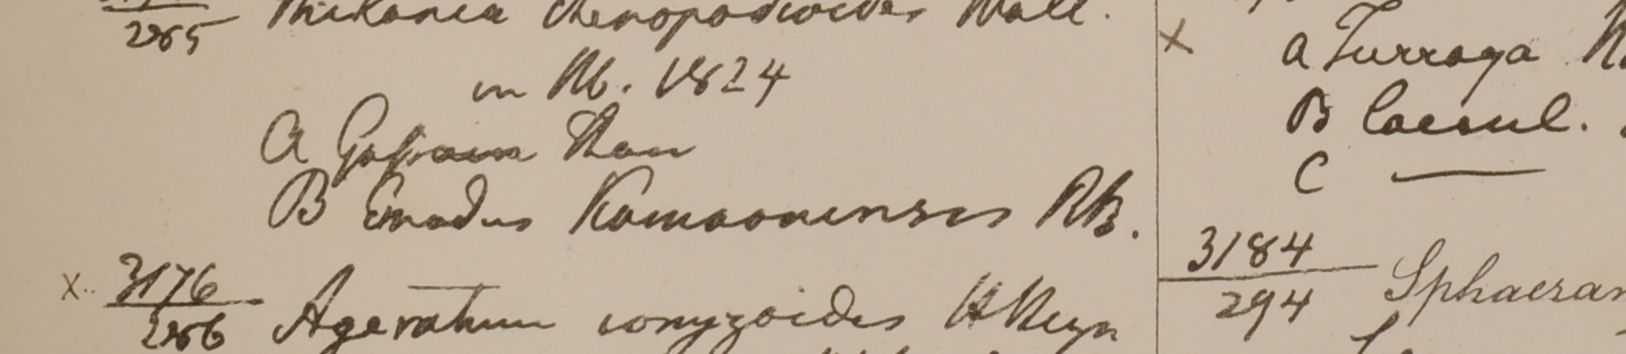 285 Mikania chenopodioides Wall.
in Hb. 1824
A Gossain Than
B Emodus Kamaonensis RB.
x 3176
286 Ageratum conyzoides H Heyn
x a Turraga
B Coesul.
C —
3184
294 Sphaeran